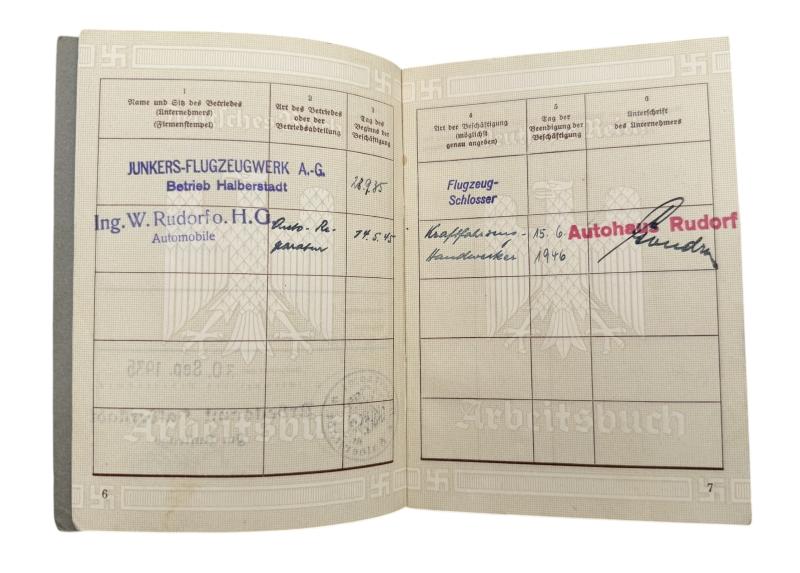 1
Name und Sitz des Betriebes
(Unternehmers)
(Firmenstempel)
2
Art des Betriebes
oder der
Betriebsabteilung
3
Tag des
Beginns der
Beschäftigung
JUNKERS-FLUGZEUGWERK A.-G.
Betrieb Halberstadt
28.9.35
Ing. W. Rudorf o. H. G.
Automobile
Auto-Re-
paratur
14.5.45
30. Sep. 1935
Arbeitsbuch
6
4
Art der Beschäftigung
(möglichst
genau angeben)
5
Tag der
Beendigung der
Beschäftigung
6
Unterschrift
des Unternehmers
Flugzeug-
Schlosser
Kraftfahrzeug-
Handwerker
15.6.
1946
Autohaus Rudorf
Arbeitsbuch
7